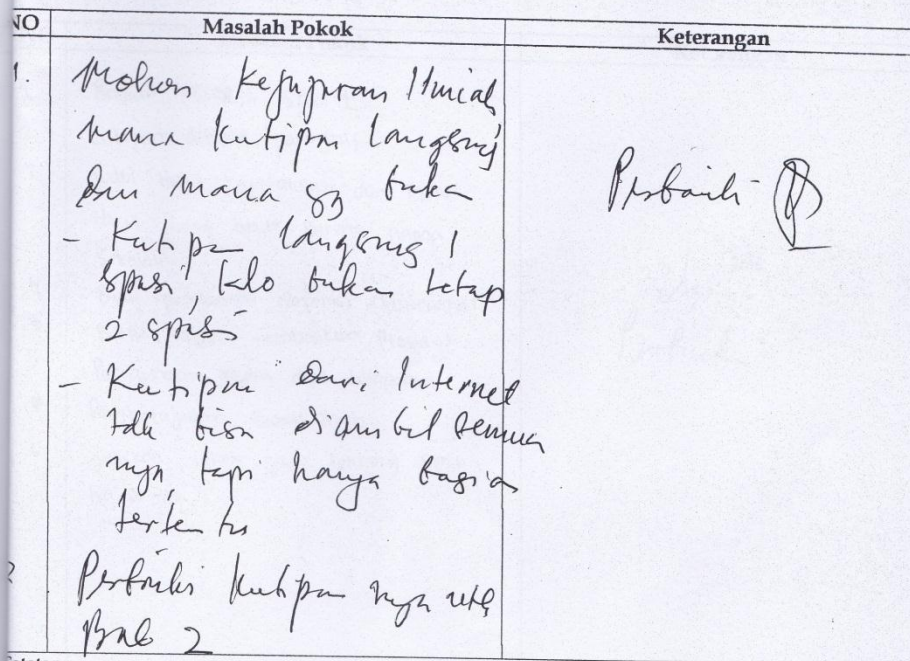 NO Masalah Pokok Keterangan
1. Mohon Kejujuran Ilmiah
mana Kutipan langsung
dan mana yg bukan
Perbaiki
- Kutipan langsung 1
spasi, klo bukan tetap
2 spasi
- Kutipan dari Internet
tdk bisa diambil semua
nya, tapi hanya bagian
tertentu
2 Perbaiki kutipan nya utk
Bab 2